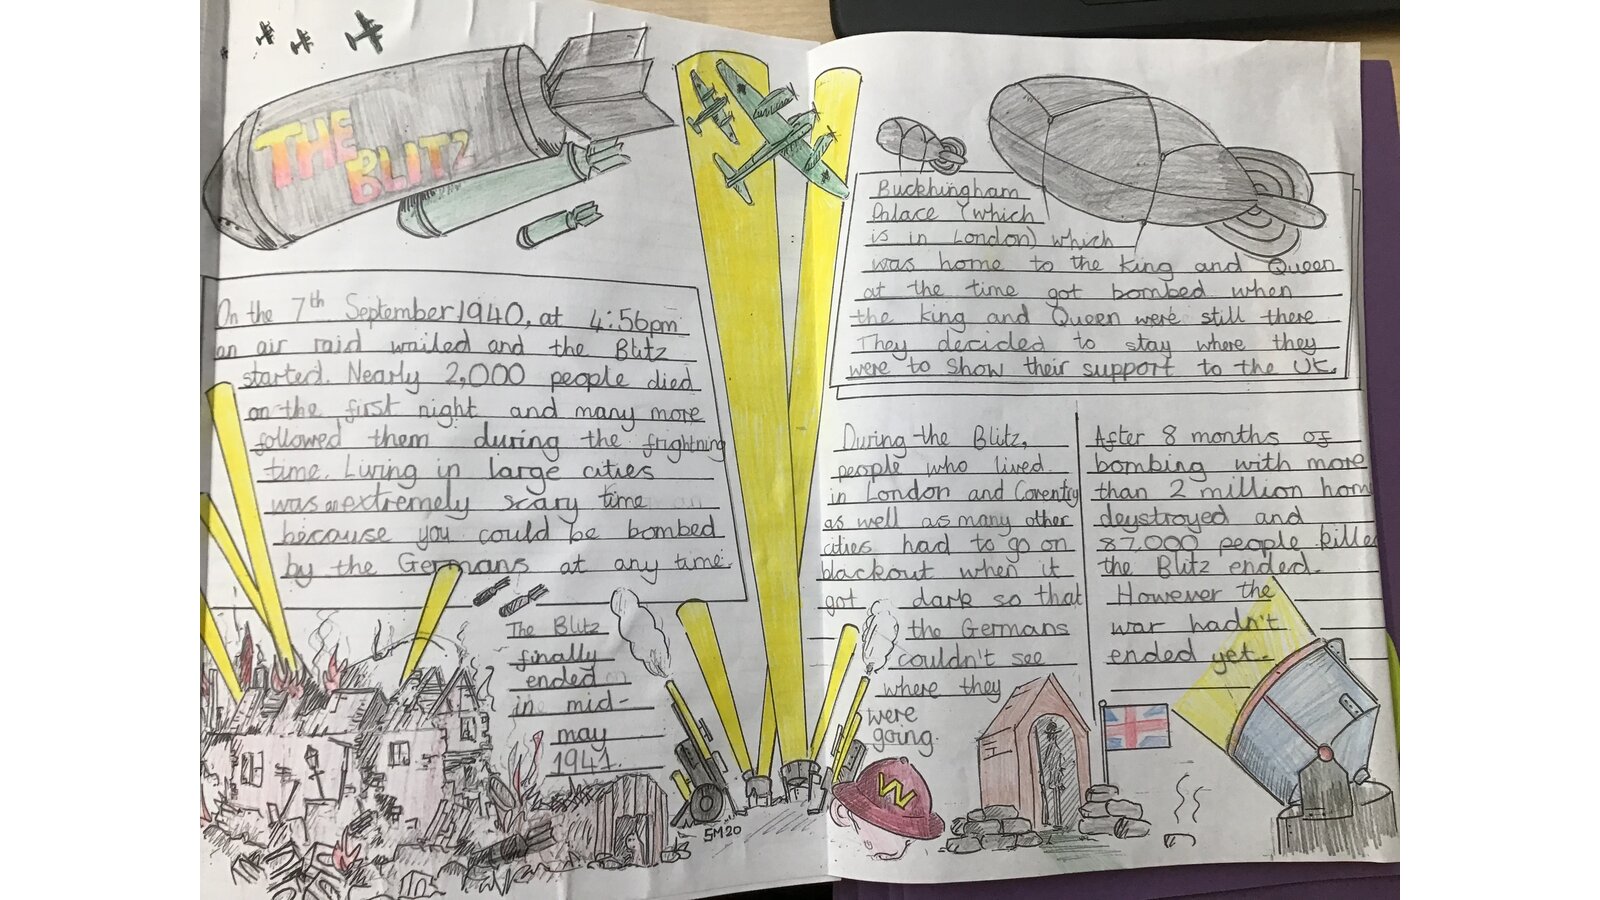 THE
BLITZ
On the 7th September 1940, at 4:56pm
an air raid wailed and the Blitz
started. Nearly 2,000 people died
on the first night and many more
followed them during the frightning
time. Living in large cities
was an extremely scary time
because you could be bombed
by the Germans at any time.
The Blitz
finally
ended
in mid-
may
1941.
SM20
Buckhingham
Palace (which
is in London) which
was home to the King and Queen
at the time got bombed when
the King and Queen were still there
They decided to stay where they
were to show their support to the UK.
During the Blitz,
people who lived
in London and Coventry
as well as many other
cities had to go on
blackout when it
got dark so that
the Germans
couldn't see
where they
were
going.
W
After 8 months of
bombing with more
than 2 million hom
deystroyed and
87,000 people kille
the Blitz ended.
However the
war hadn't
ended yet.